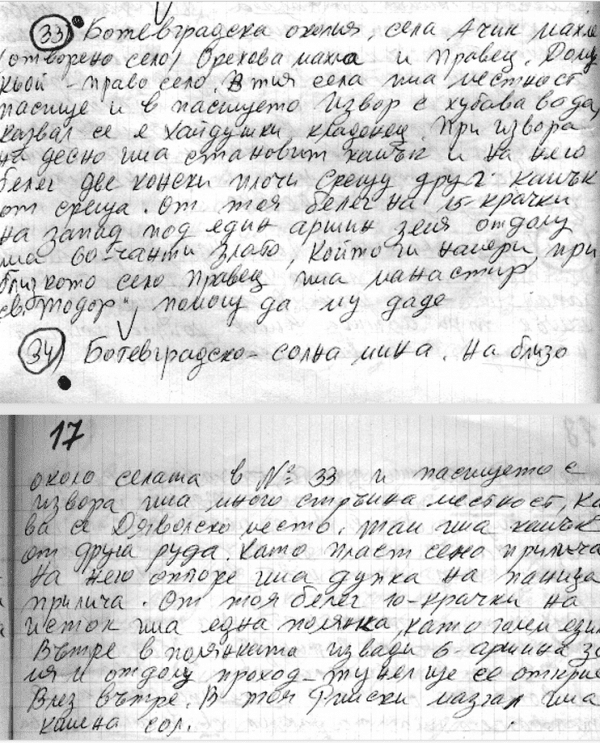 33 Ботевградска околия, села Ачик махле
/отворено село/ Орехова махла и Правец. Долу
кьой - право село. В тия села има местност
пасище и в пасището извор с хубава вода,
казват се я хайдушки кладенец. При извора
на десно има становит камък и на него
белег две конски плочи срещу друг камък
от среща. От тоя белег на 15-крачки
на запад под един аршин земя отдолу
има 60-чанти злато, който ги намери, при
близкото село Правец има манастир
св. Тодор", помощ да му даде
34 Ботевградско - солна мина. На близо
17
около селата в № 33 и пасището с
извора има много стръмна местност, ка
ва се Дяволско место. Там има камък
от друга руда, като пласт сено прилича
На него отгоре има дупка на паница
прилича. От тоя белег 10-крачки на
исток има една полянка, като голем
Вътре в полянката извади 6-аршина зе
мя и отдолу проход - тунел ще се открие
Влез вътре. В тоя Римски мазгал има
камена сол.